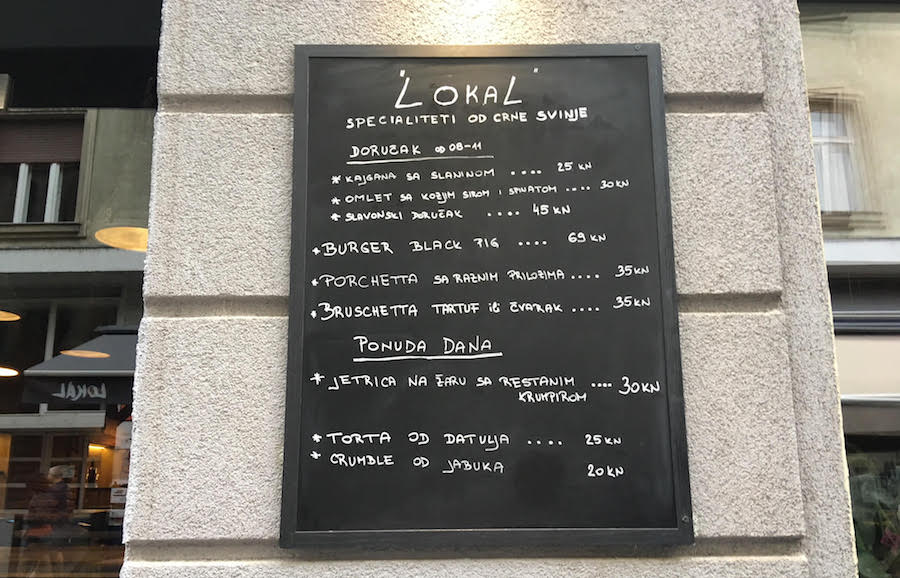 "LOKAL"
SPECIALITETI OD CRNE SVINJE
DORUČAK OD 08-11
* KAJGANA SA SLANINOM .... 25 KN
* OMLET SA KOZJIM SIROM I SPINATOM .... 30 KN
* SLAVONSKI DORUČAK .... 45 KN
* BURGER BLACK PIG .... 69 KN
* PORCHETTA SA RAZNIM PRILOZIMA .... 35 KN
* BRUSCHETTA TARTUF ili ČVARAK .... 35 KN
PONUDA DANA
* JETRICA NA ŽARU SA RESTANIM .... 30 KN
KRUMPIROM
* TORTA OD DATULJA .... 25 KN
* CRUMBLE OD JABUKA 20 KN
LOKAL